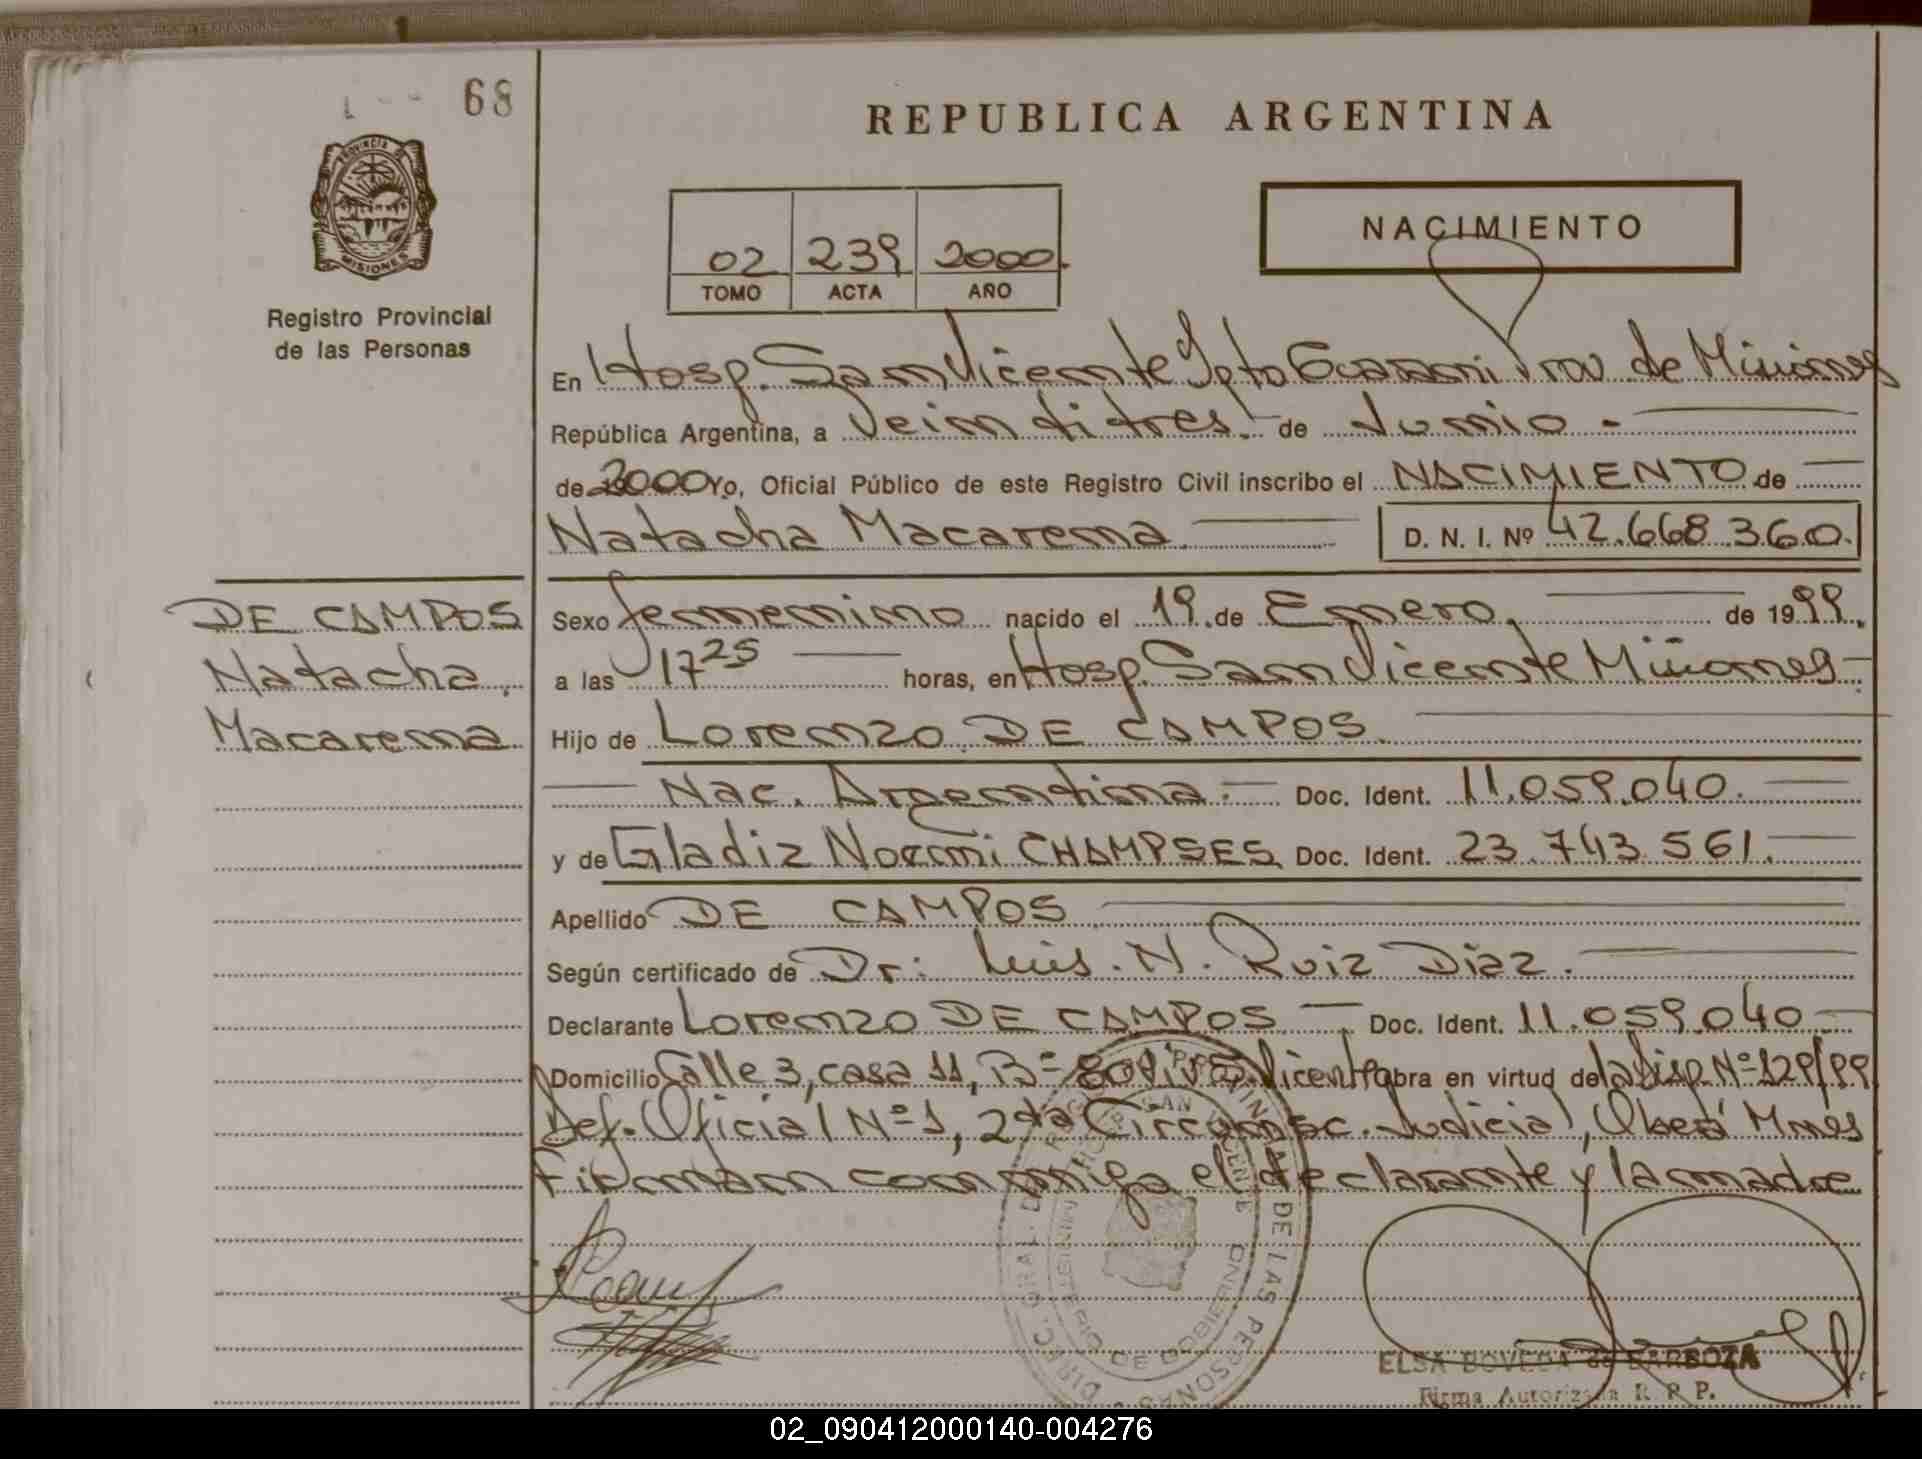 68
REPUBLICA ARGENTINA
PROVINCIA DE
MISIONES
Registro Provincial
de las Personas
02 239 2000
TOMO ACTA AÑO
NACIMIENTO
En Hosp. San Vicente Dpto Guarani Prov de Misiones
República Argentina, a Veintitres.- de Junio -
de 2000 Yo, Oficial Público de este Registro Civil inscribo el NACIMIENTO de
Natacha Macarena D. N. I. Nº 42.668.360.
DE CAMPOS
Natacha
Macarena
Sexo femenino nacido el 19 de Enero de 1999.
a las 17 25 horas, en Hosp. San Vicente Misiones-
Hijo de Lorenzo DE CAMPOS
Nac. Argentina.- Doc. Ident. 11.059.040.
y de Gladiz Noemi CHAMPSES Doc. Ident. 23.743.561.
Apellido DE CAMPOS
Según certificado de Dr: Luis. N. Ruiz Diaz.
Declarante Lorenzo DE CAMPOS - Doc. Ident. 11.059.040
Domicilio Calle 3, casa 11, Bº 80 Viv S. Vicente obra en virtud de la Disp. Nº 129/99
Def. Oficial Nº 1, 2da Circunsc. Judicial, Oberá Mnes
Firman conmigo el declarante y la madre
DIREC. GRAL. DE LAS PERSONAS
MINISTERIO DE GOBIERNO
SAN VICENTE
ELSA BOVEDA de BARBOZA
Firma Autorizada R. P. P.
02_090412000140-004276